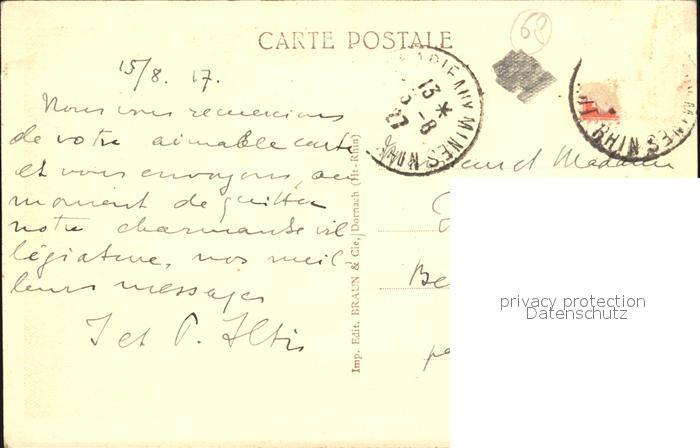 68
CARTE POSTALE
15/8. 17.
Nous vous remercions
de votre aimable carte
et vous envoyons, au
moment de quitter
notre charmante vil
légiature, nos meil
leurs messages
J et P. Iltis
MARIE AUX MINES
13 *
-8
27
HAUT-RHIN
MINES
et Madame
Be
pa
Imp. Edit. BRAUN & Cie, Dornach (Ht-Rhin)
privacy protection
Datenschutz